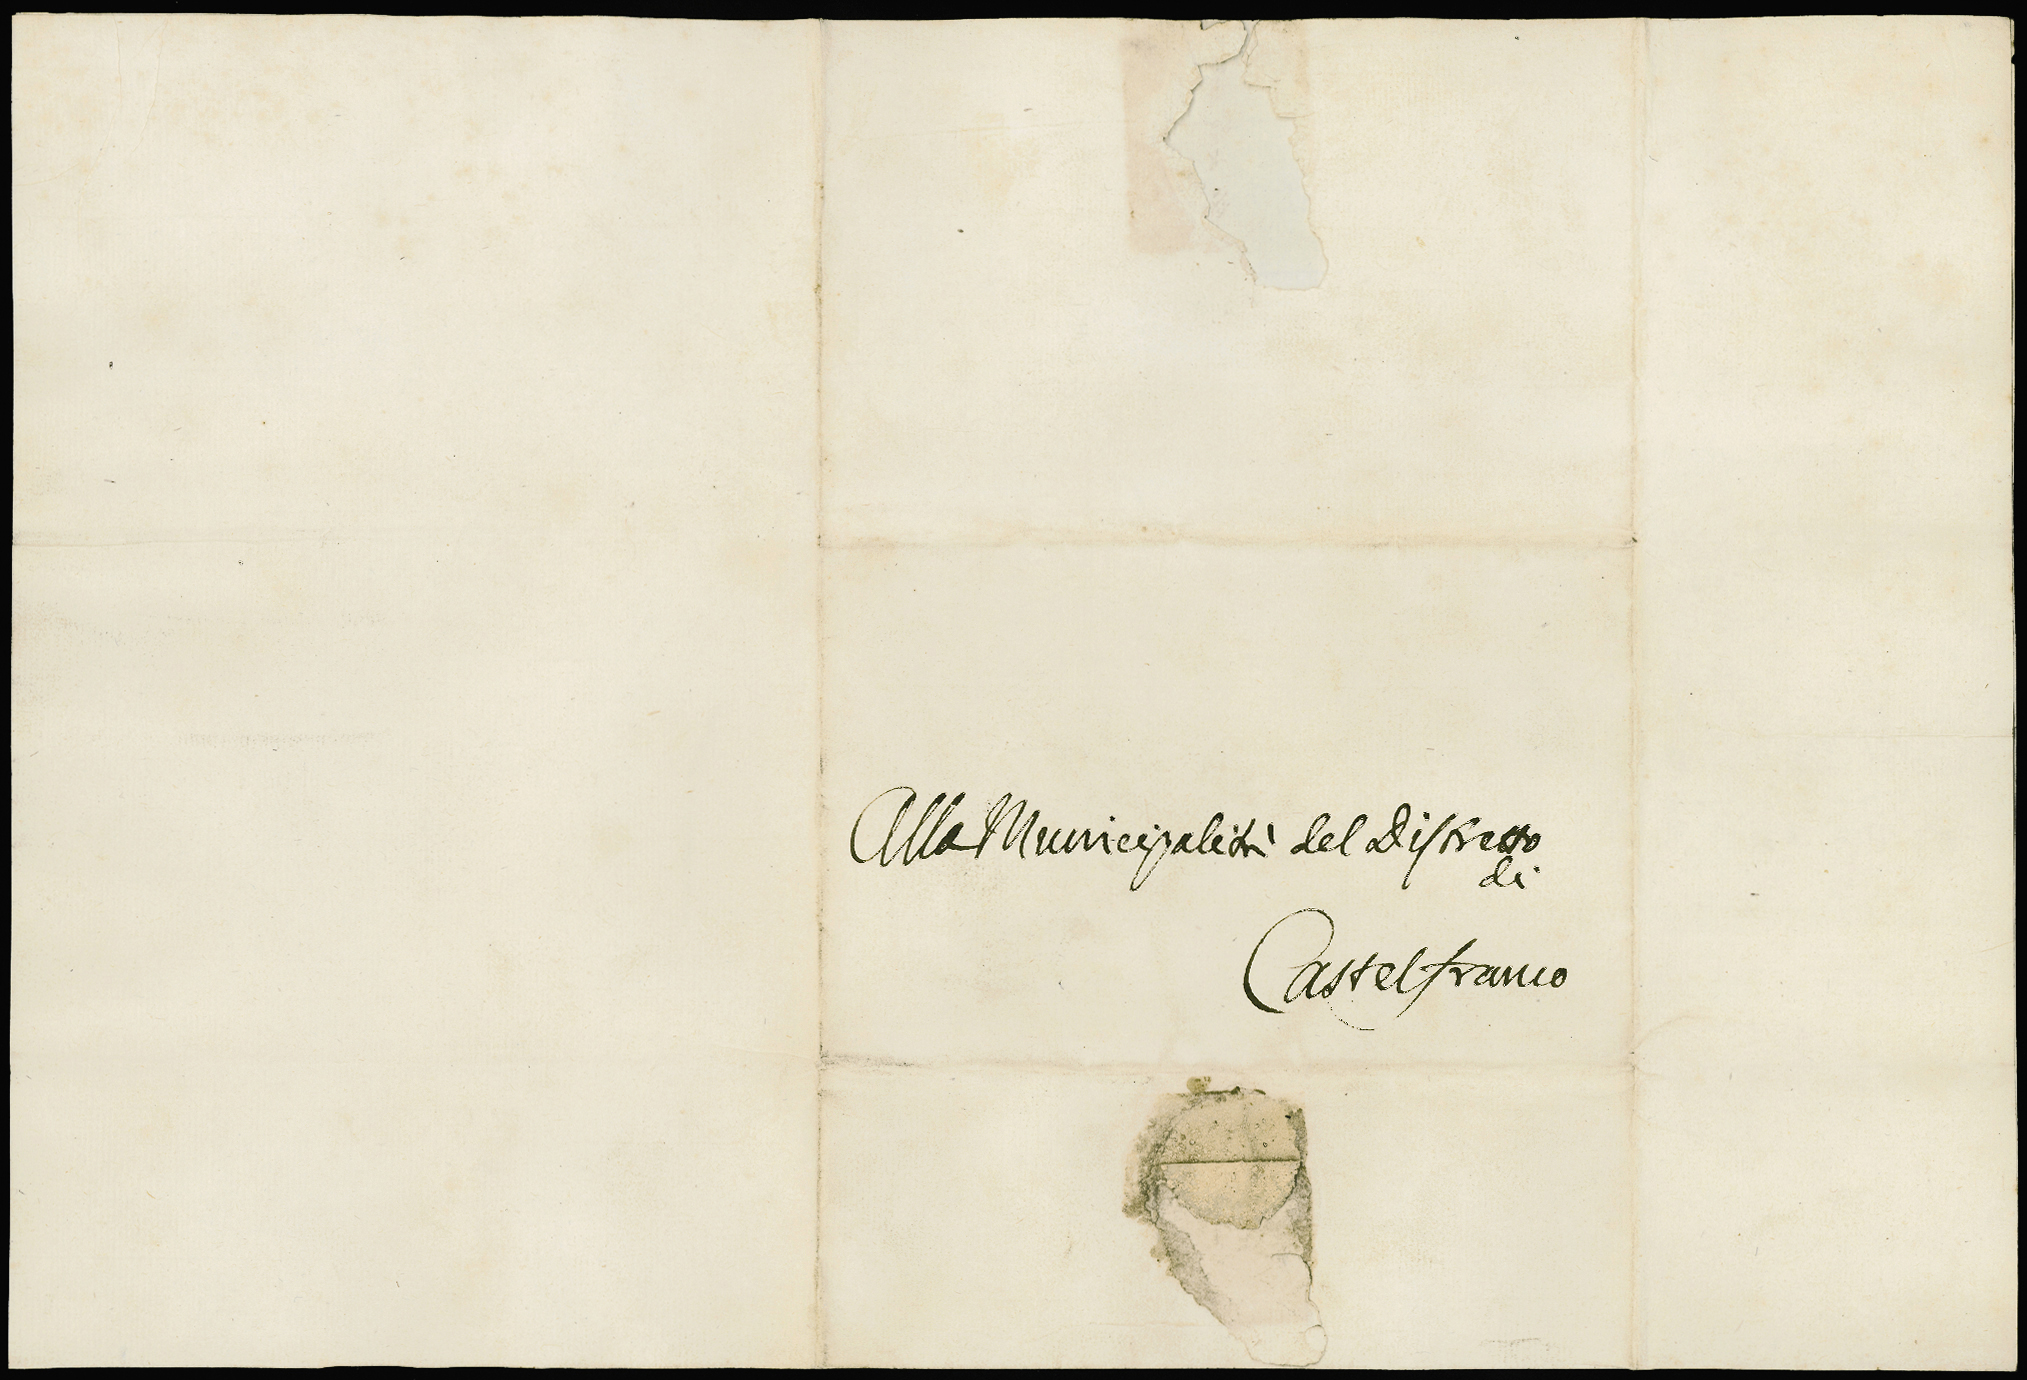 Alla Municipalità del Distretto
di
Castelfranco